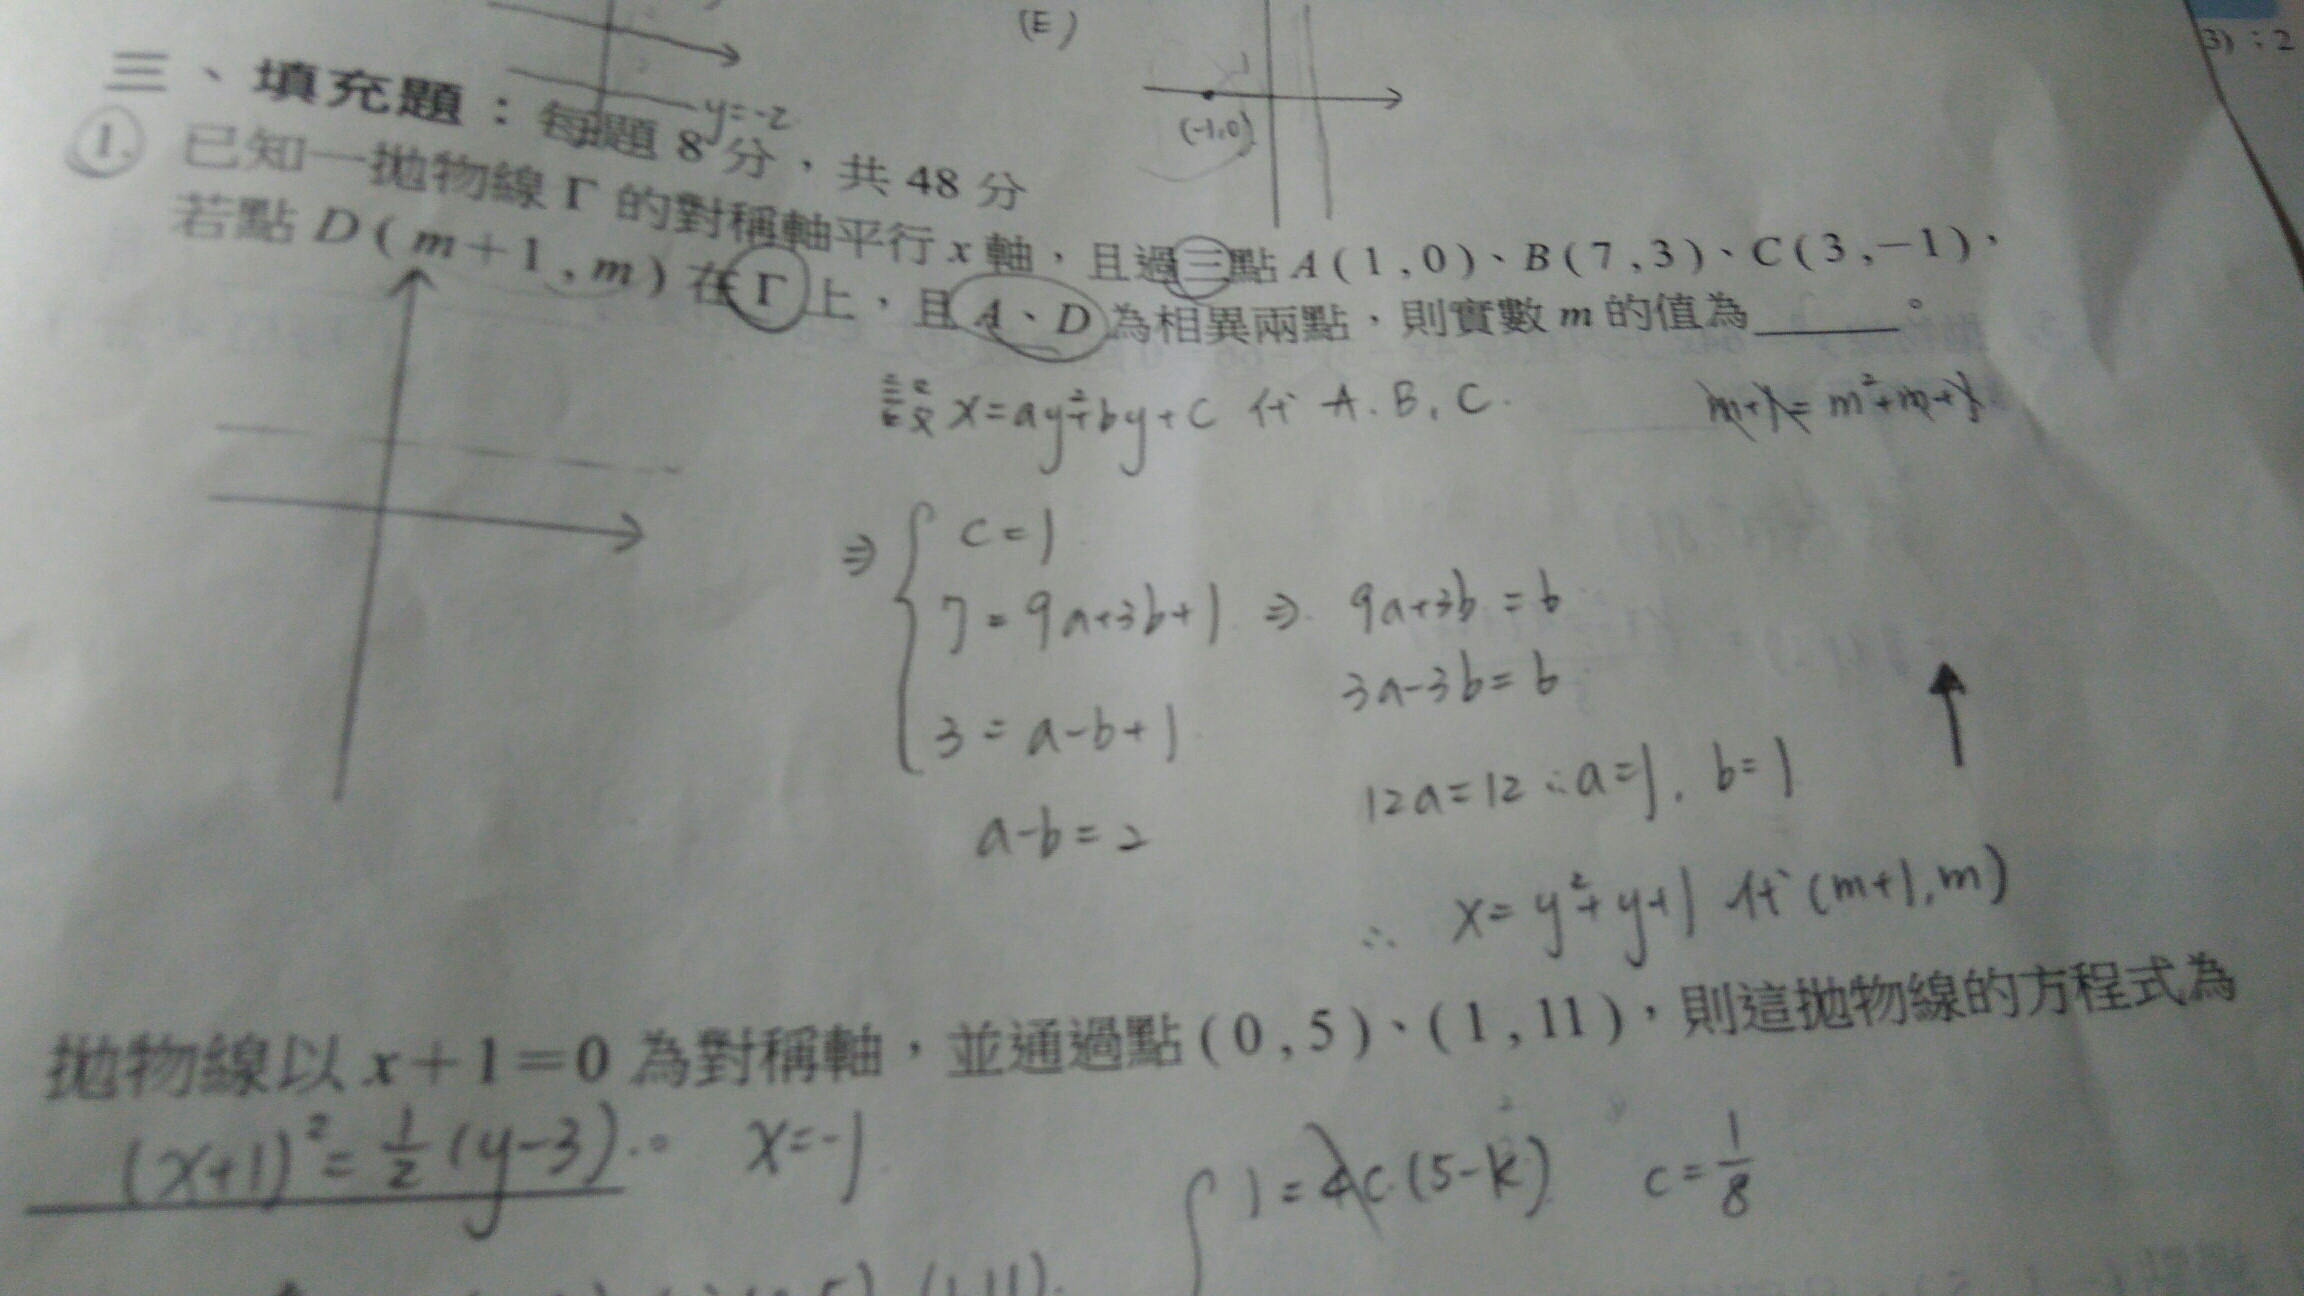 (E)
3) ÷ 2
y=-2
(-1,0)
三、填充題：每題 8 分，共 48 分
1. 已知一拋物線 Γ 的對稱軸平行 x 軸，且過三點 A ( 1 , 0 )、B ( 7 , 3 )、C ( 3 , −1 )，
若點 D ( m＋1 , m ) 在 Γ 上，且 A、D 為相異兩點，則實數 m 的值為______。
設 x=ay²+by+c 代 A. B. C.
m+1=m²+m+1
⇒ { c=1
7=9a+3b+1 ⇒ 9a+3b=6
3a-3b=6
3=a-b+1
12a=12 ∴a=1, b=1
a-b=2
∴ x=y²+y+1 代 (m+1,m)
拋物線以 x＋1＝0 為對稱軸，並通過點 ( 0 , 5 )、( 1 , 11 )，則這拋物線的方程式為
(x+1)²=1/2(y-3)。 x=-1
1=4c(5-k) c=1/8
(1,11)